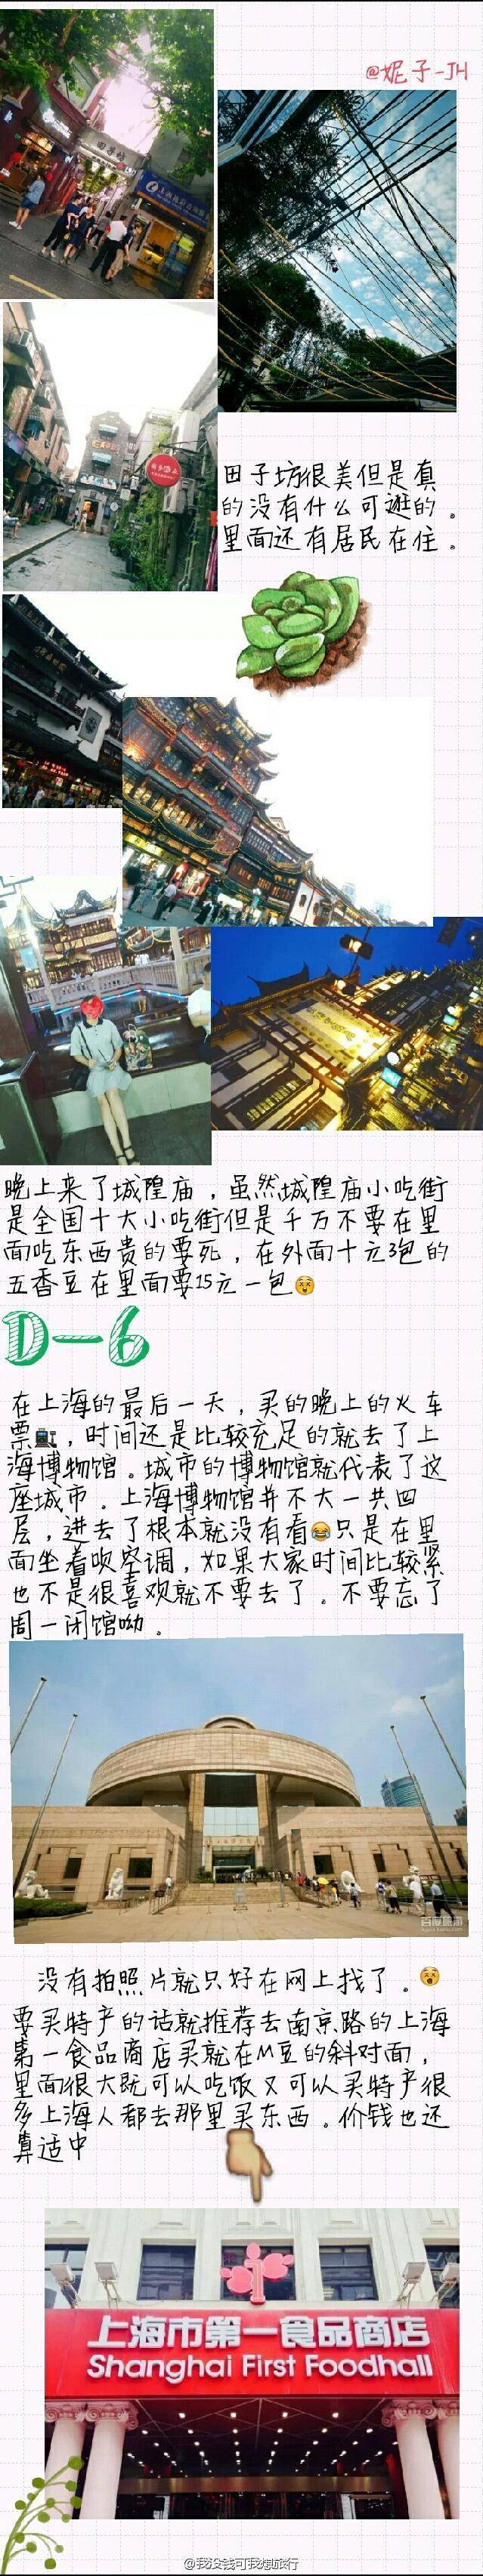 @妮子-JH
田子坊
田子坊很美但是真
的没有什么可逛的。
里面还有居民在住。
晚上来了城隍庙，虽然城隍庙小吃街
是全国十大小吃街但是千万不要在里
面吃东西贵的要死，在外面十元3包的
五香豆在里面要15元一包😵
D-6
在上海的最后一天，买的晚上的火车
票🚉，时间还是比较充足的就去了上
海博物馆。城市的博物馆就代表了这
座城市。上海博物馆并不大一共四
层，进去了根本就没有看😂只是在里
面坐着吹空调，如果大家时间比较紧
也不是很喜欢就不要去了。不要忘了
周一闭馆呦。
百度旅游
没有拍照片就只好在网上找了。😵
要买特产的话就推荐去南京路的上海
第一食品商店买就在M豆的斜对面，
里面很大既可以吃饭又可以买特产很
多上海人都去那里买东西。价钱也还
算适中
上海市第一食品商店
Shanghai First Foodhall